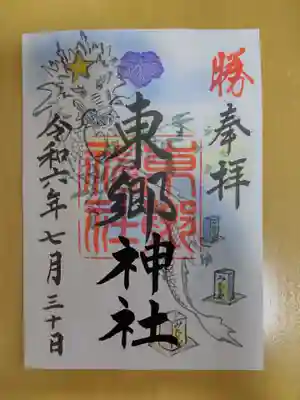 勝
奉拝
東郷神社
東郷神社
令和六年七月三十日